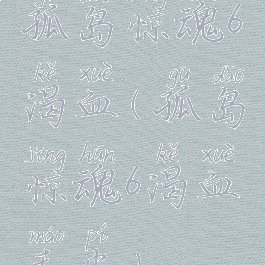 孤岛惊魂6
kě xuè gū dǎo
渴血(孤岛
jīng hún kě xuè
惊魂6渴血
máo pí